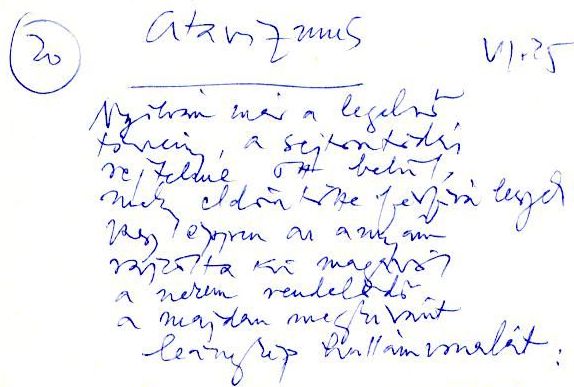 20
Atavizmus
VI.25
Nyilván már a legelső
törvény, a sejtosztódási
rejtelme ott belül,
mely eldöntötte férfivá legyek
vagy éppen az anyám
rajzolta ki magából
a nekem rendelődő
a majdan megkívánt
leánykép hullámvonalát: